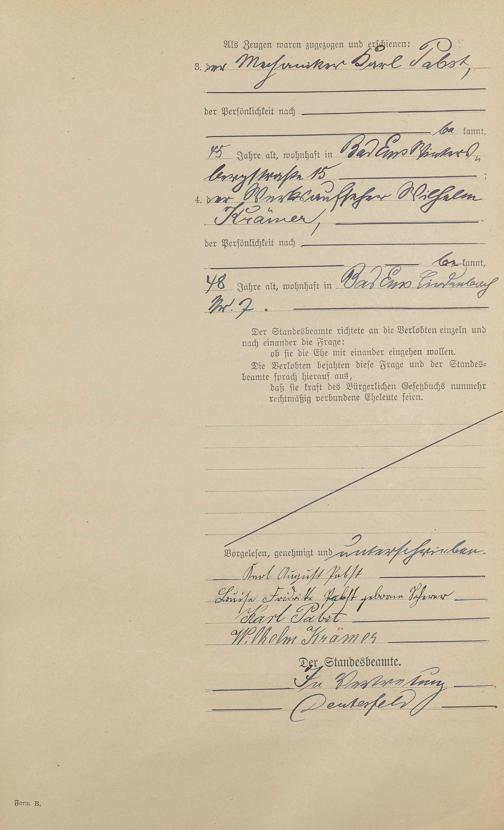 Als Zeugen waren zugezogen und erschienen:
3. der Mechaniker Karl Pabst,
der Persönlichkeit nach
be kannt,
45 Jahre alt, wohnhaft in Bad Ems Winters-
bergstraße 15 ;
4. der Werksaufseher Wilhelm
Krämer,
der Persönlichkeit nach
be kannt,
48 Jahre alt, wohnhaft in Bad Ems Lindenbach
Nr. 7.
Der Standesbeamte richtete an die Verlobten einzeln und
nach einander die Frage:
ob sie die Ehe mit einander eingehen wollen.
Die Verlobten bejahten diese Frage und der Standes-
beamte sprach hierauf aus,
daß sie kraft des Bürgerlichen Gesetzbuchs nunmehr
rechtmäßig verbundene Eheleute seien.
Vorgelesen, genehmigt und unterschrieben.
Karl August Pabst
Louise Pabst geborne Scherer
Karl Pabst
Wilhelm Krämer
Der Standesbeamte.
In Vertretung
Form. B.